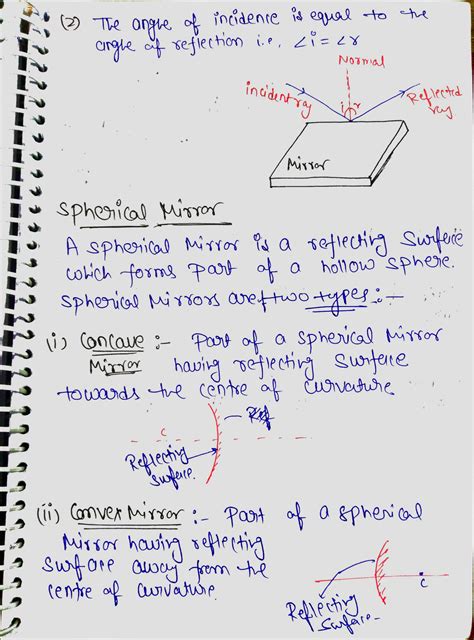 (2) The angle of incidence is equal to the
angle of reflection i.e., ∠i = ∠r
Normal
incident ray
i r
Reflected
ray
Mirror
Spherical Mirror
A spherical Mirror is a reflecting Surface
which forms Part of a hollow sphere.
Spherical Mirrors are of two types :-
(i) Concave :- Part of a spherical Mirror
Mirror having reflecting Surface
towards the centre of curvature
C
Reflecting
Surface.
(ii) Convex Mirror :- Part of a spherical
Mirror having reflecting
Surface away from the
centre of curvature.
C
Reflecting
Surface-